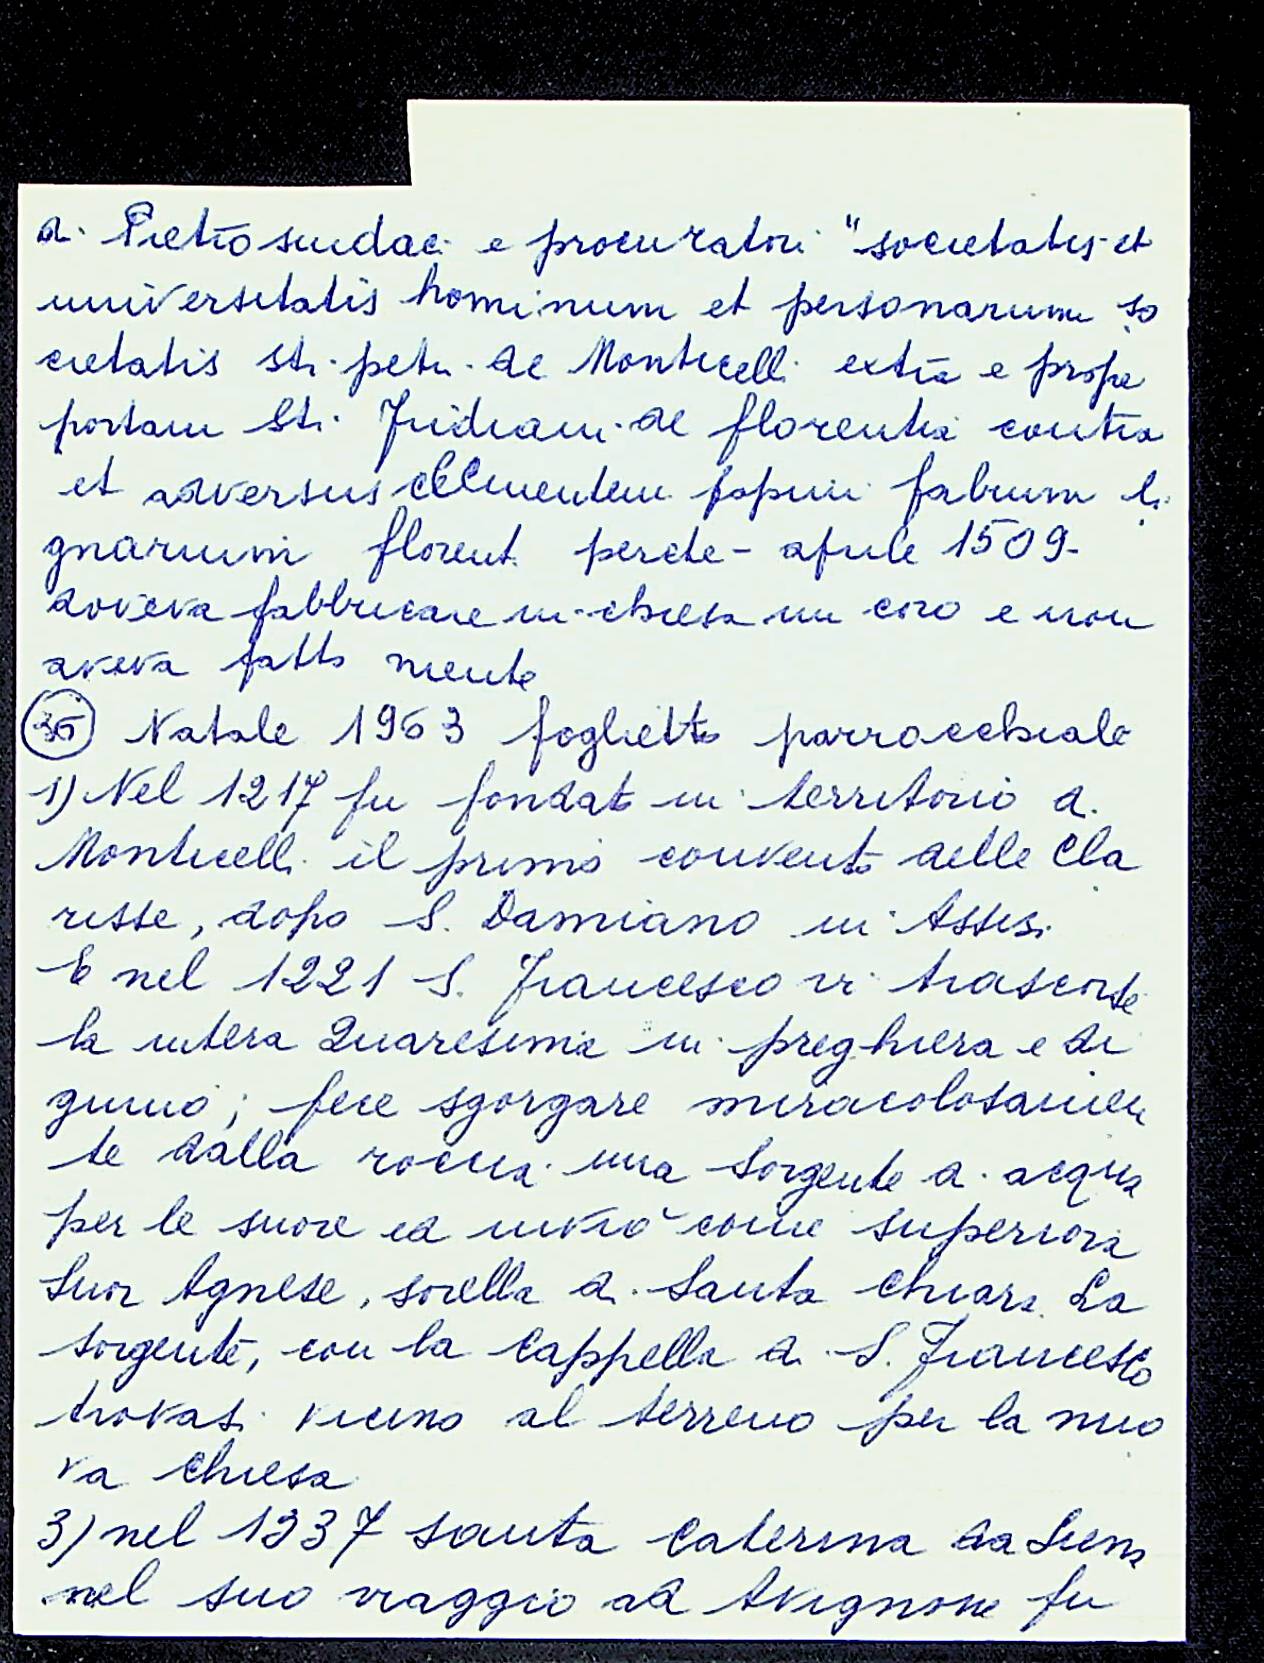 di Pietro sindaci e procuratori "societatis et
universitatis hominum et personarum so
cietatis sti. petri de Monticelli extra e prope
portam Sti. Fridiani de florentia contra
et adversus Clementem papini fabrum li
gnarium florent. perché - aprile 1509 -
doveva fabbricare in chiesa un coro e non
aveva fatto niente
35 Natale 1963 foglietto parrocchiale
1) Nel 1217 fu fondato in territorio di
Monticelli il primo convento delle Cla
risse, dopo S. Damiano in Assisi.
E nel 1221 S. Francesco vi trascorse
la intera Quaresima in preghiera e di
giuno; fece sgorgare miracolosamen
te dalla roccia una sorgente di acqua
per le suore ed inviò come superiora
Suor Agnese, sorella di Santa Chiara. La
sorgente, con la Cappella di S. Francesco
trovasi vicino al terreno per la nuo
va Chiesa
3) nel 1337 santa Caterina da Siena
nel suo viaggio ad Avignone fu